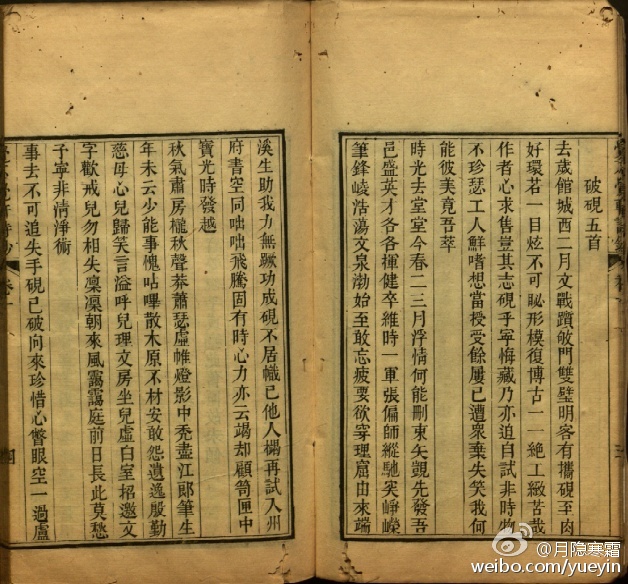 破硯五首
去歲館城西二月文戰躓敂門雙璧明客有攜硯至肉
好環若一目炫不可形模復博古一一絕工緻苦哉
作者心求售豈其志硯乎寧悔藏乃亦追自試非時物
不珍瑟工人鮮嗜想當授受餘屢已遭衆棄失笑我何
能彼美竟吾萃
時光去堂堂今春二三月浮情何能刪東矢覬先發吾
邑盛英才各各揮健卒維時一軍張偏師縱馳突崢嶸
筆鋒崚浩蕩文泉渤始至敢忘疲要欲穿理窟由來端
溪生助我力無蹶功成硯不居幟已他人揭再試入州
府書空同咄咄飛騰固有時心力亦云竭却顧笥匣中
寶光時發越
秋氣肅房櫳秋聲奏蕭瑟虛帷燈影中禿盡江郎筆生
年未云少能事愧呫嗶散木原不材安敢怨遺逸殷勤
慈母心兒歸笑言溢呼兒理文房坐兒虛白室招邀文
字歡戒兒勿相失凜凜朝來風靄靄庭前日長此莫愁
子寧非清淨術
事去不可追失手硯已破向來珍惜心瞥眼空一過盧
@月隐寒霜
weibo.com/yueyin